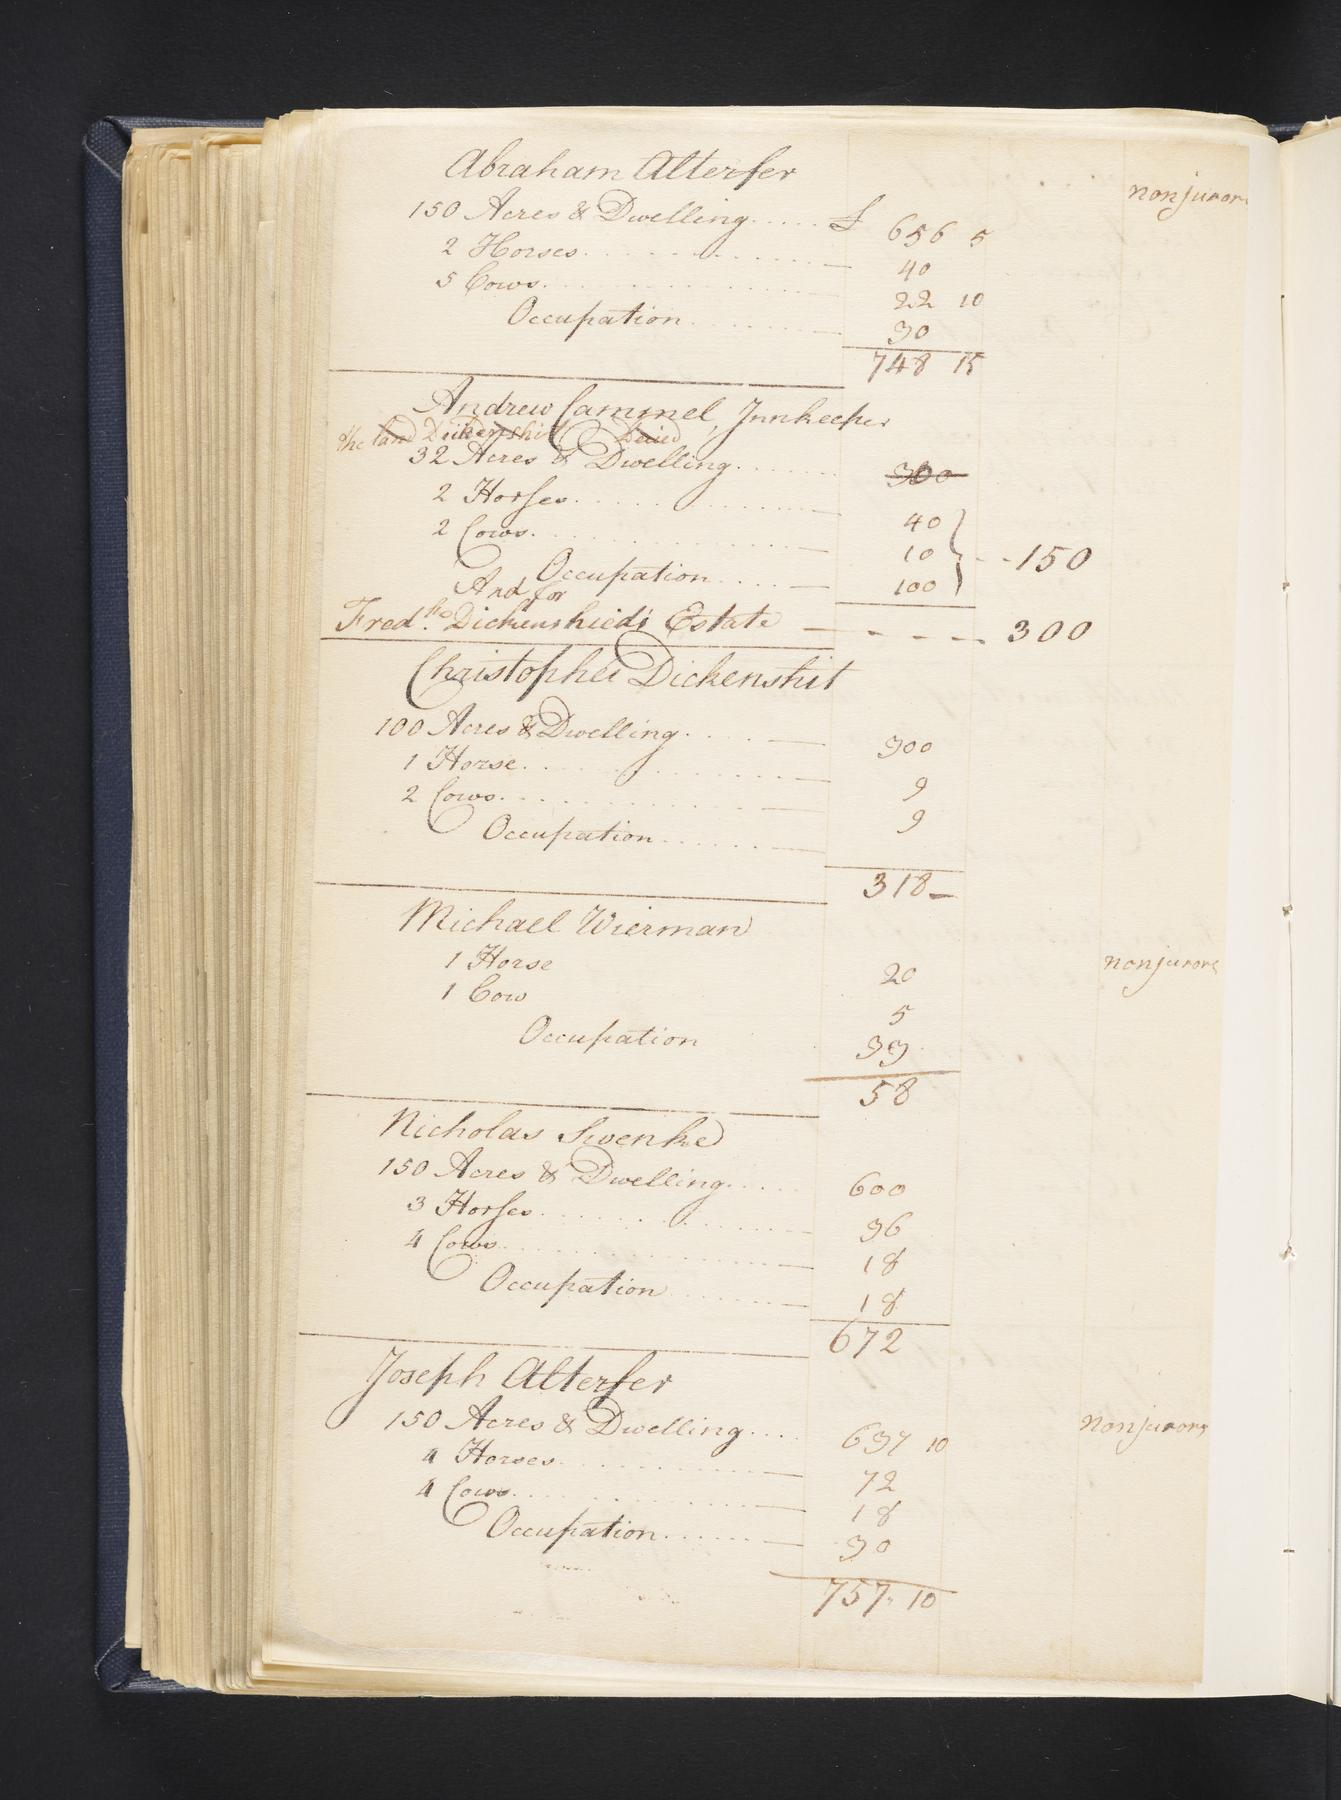 Abraham Alterfer
nonjuror
150 Acres & Dwelling..... £ 656 5
2 Horses........ 40
5 Cows........ 22 10
Occupation........ 30
748 15
Andrew Cammel, Innkeeper
the land Dickenshit Decied
32 Acres & Dwelling........ 300
2 Horses........ 40
2 Cows........ 10 } -- 150
Occupation..... 100
And for
Fredk. Dickenshied's Estate — - - - - 300
Christopher Dickenshit
100 Acres & Dwelling..... 300
1 Horse........ 9
2 Cows........ 9
Occupation........
318 –
Michael Wierman
1 Horse 20 nonjurors
1 Cow 5
Occupation 33
58
Nicholas Swenke
150 Acres & Dwelling..... 600
3 Horses........ 36
4 Cows........ 18
Occupation........ 18
672
Joseph Alterfer
150 Acres & Dwelling.... 637 10 Nonjurors
4 Horses........ 72
4 Cows........ 18
Occupation........ 30
757. 10